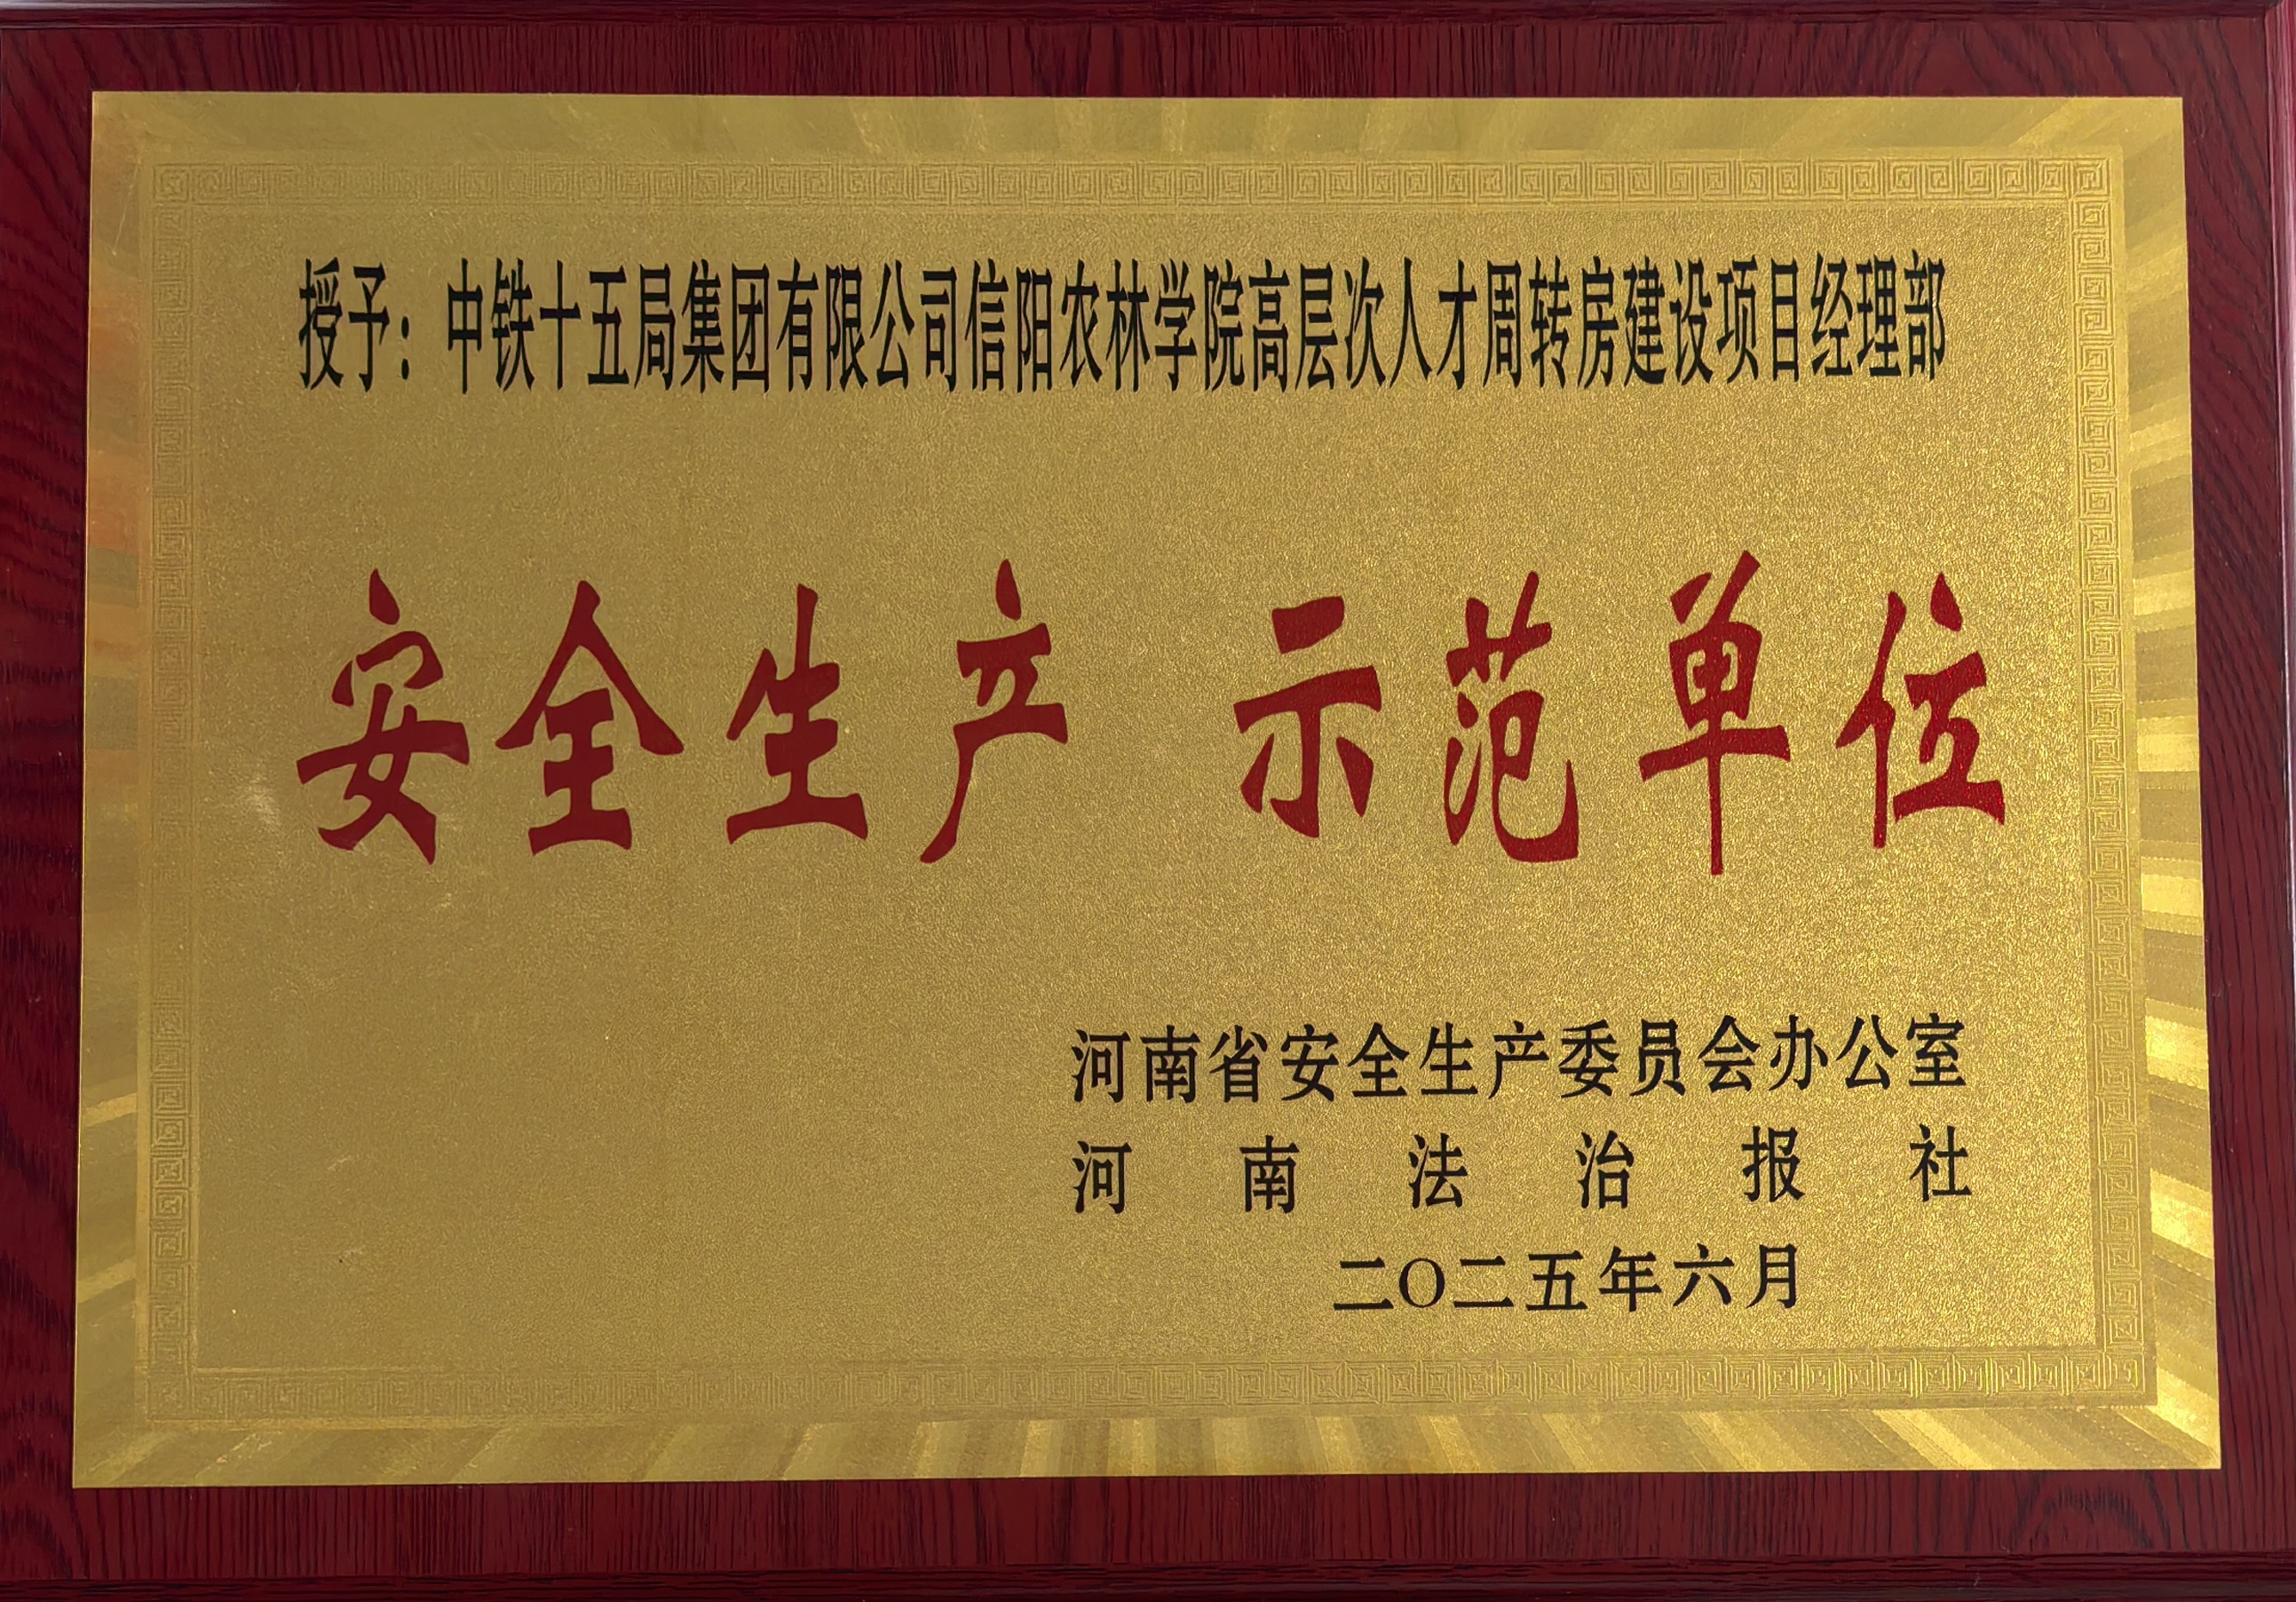 授予：中铁十五局集团有限公司信阳农林学院高层次人才周转房建设项目经理部
安全生产 示范单位
河南省安全生产委员会办公室
河南法治报社
二〇二五年六月